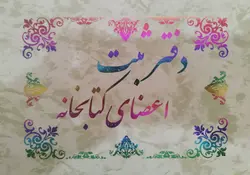 دفتر ثبت
اعضای کتابخانه